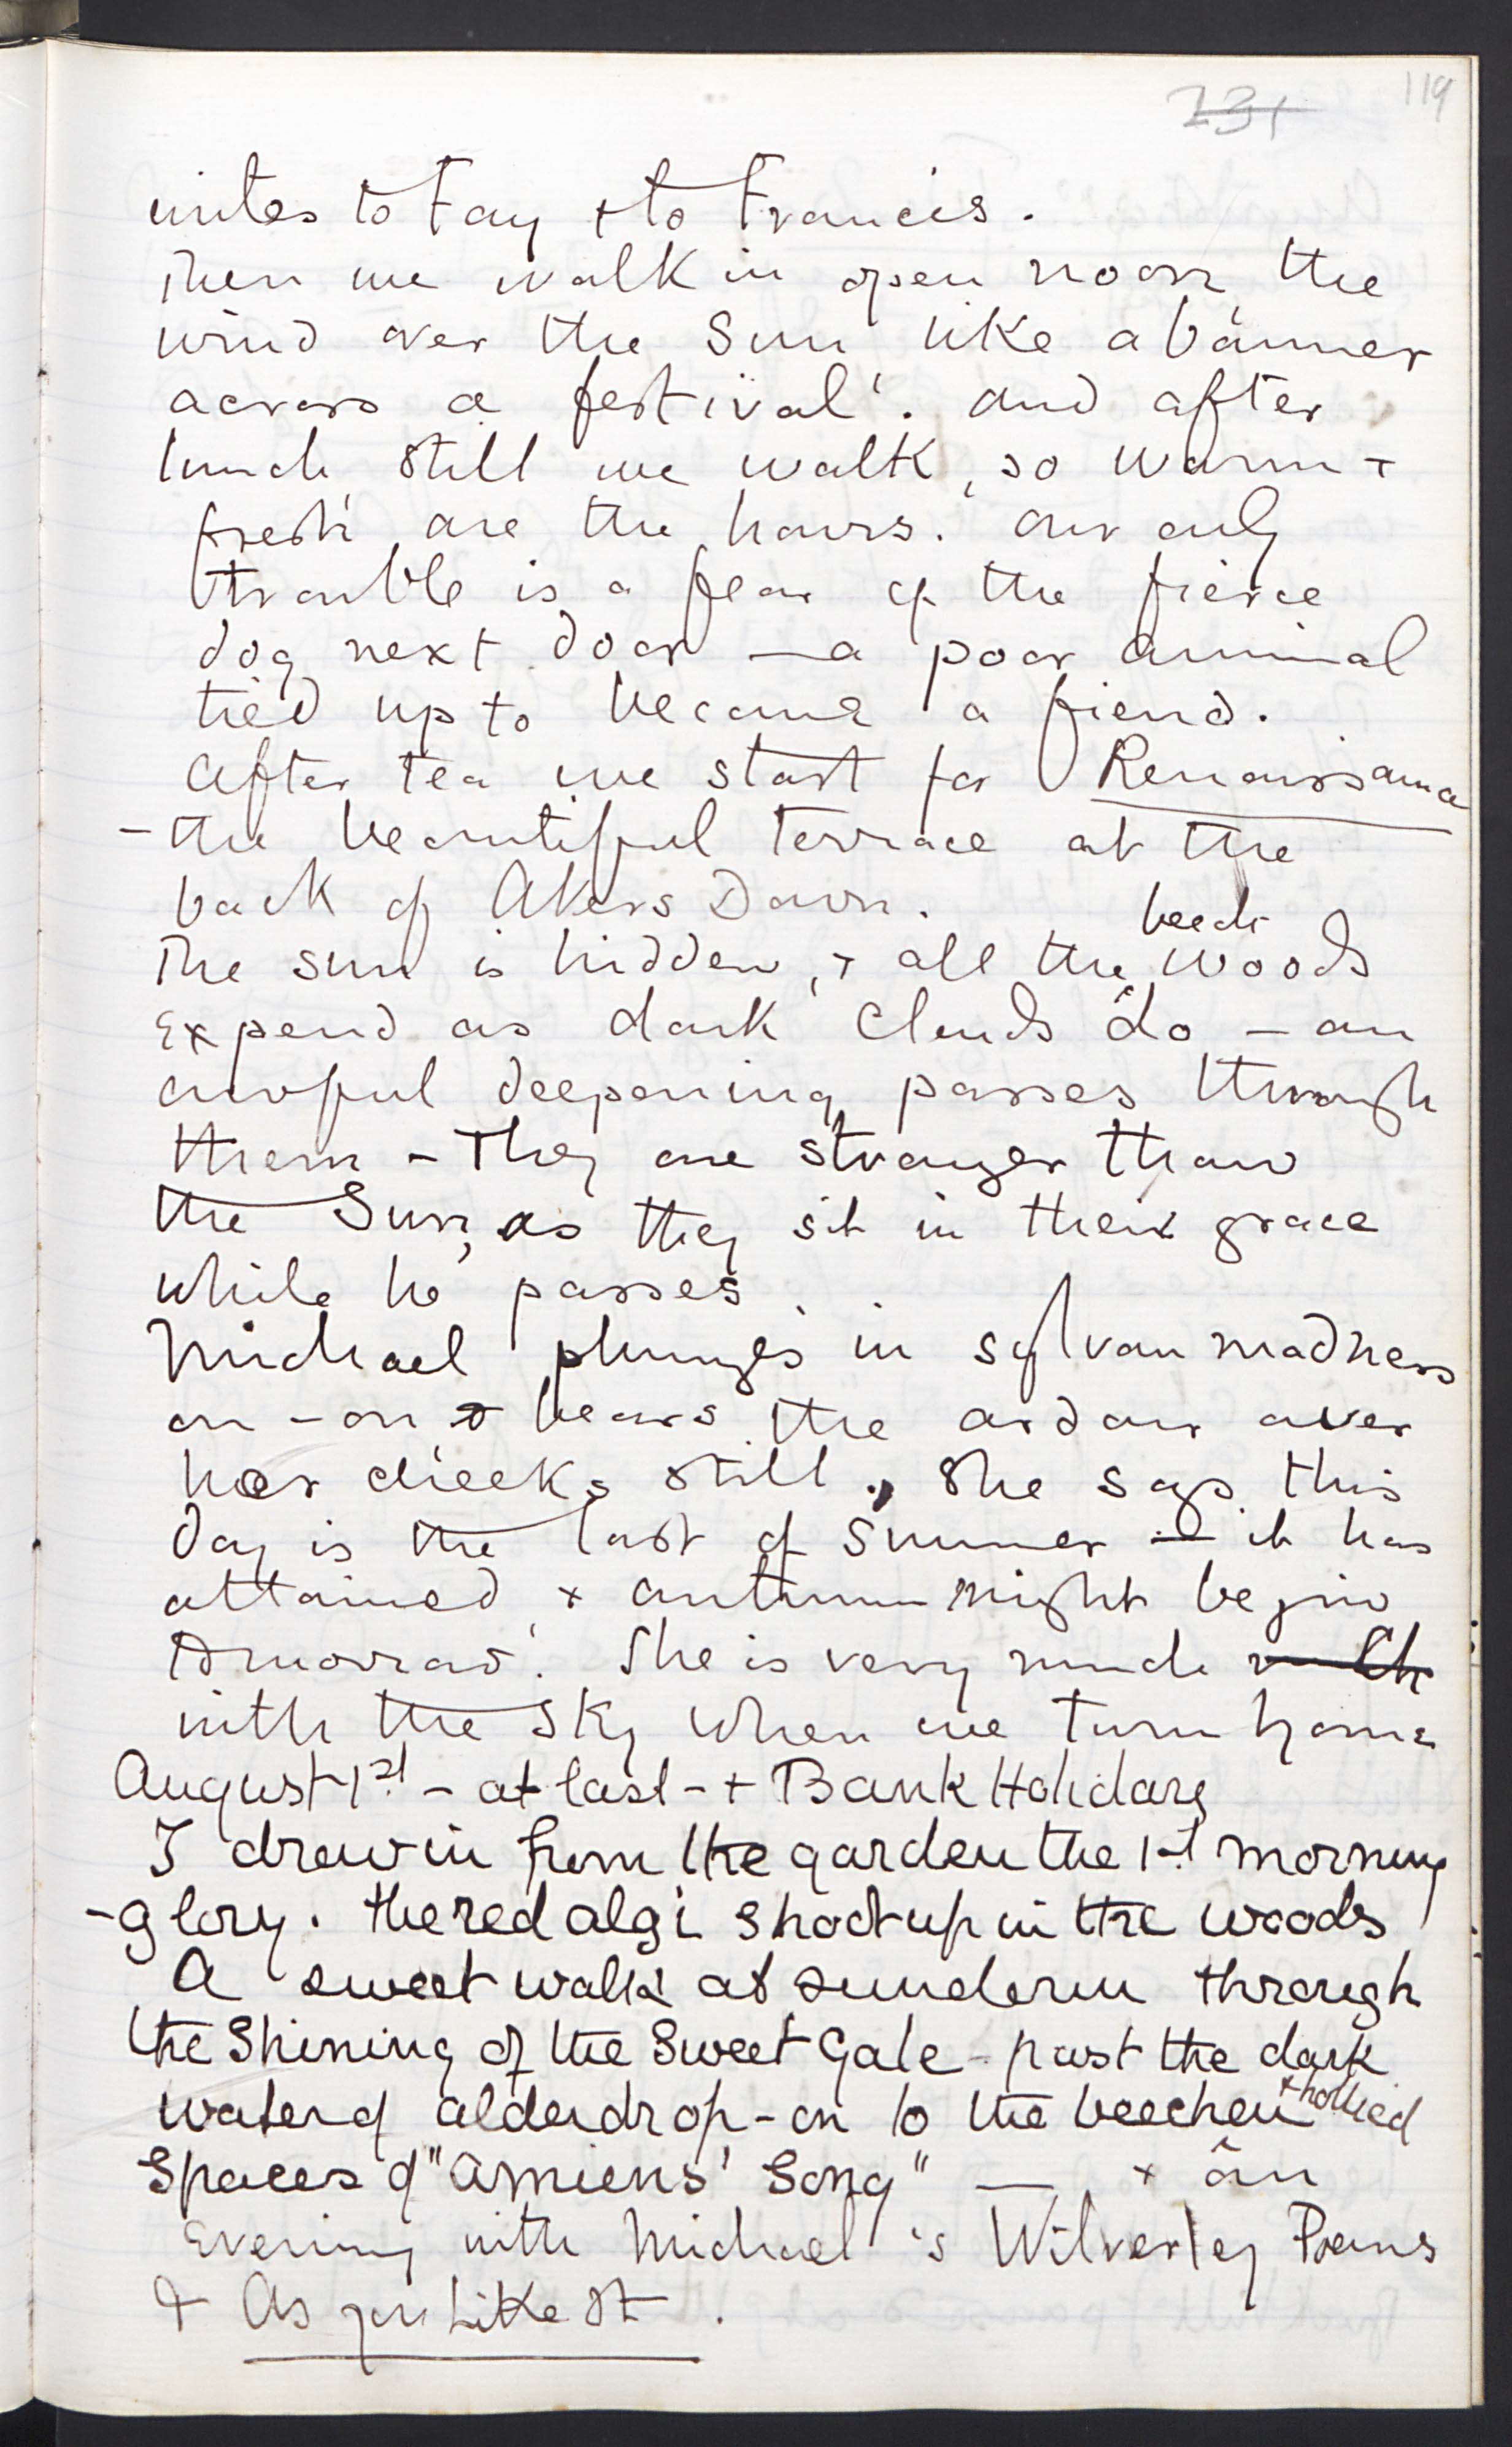 231 119
writes to Fay + to Francis.
Then we walk in open noon, the
wind over the Sun like a banner
across a festival. And after
lunch still we walk, so warm +
fresh are the hours. Our only
trouble is a fear of the fierce
dog next door — a poor animal
tied up to become a fiend.
After tea we start for Renaissance
- the beautiful terrace at the
back of Akers Down.
beech
The sun is hidden, + all the woods
expend as dark clouds do — an
awful deepening passes through
them - They are stronger than
the Sun, as they sit in their grace
while he passes.
Michael plunges in sylvan madness
on - on + bears the ardour over
her cheeks still. She says this
day is the last of Summer — it has
attained + autumn might begin
tomorrow. She is very much with
with the Sky when we turn home
August 1st. - at last - + Bank Holiday
I draw in from the garden the 1st morning
-glory. the red algi shoot up in the woods
A sweet walk at sundown through
the Shining of the Sweet Gale - past the dark
water of alderdrop - on to the beechen + hollied
Spaces of "Amiens' Song" — + an
Evening with Michael's Wilverley Poems
+ As you Like It.